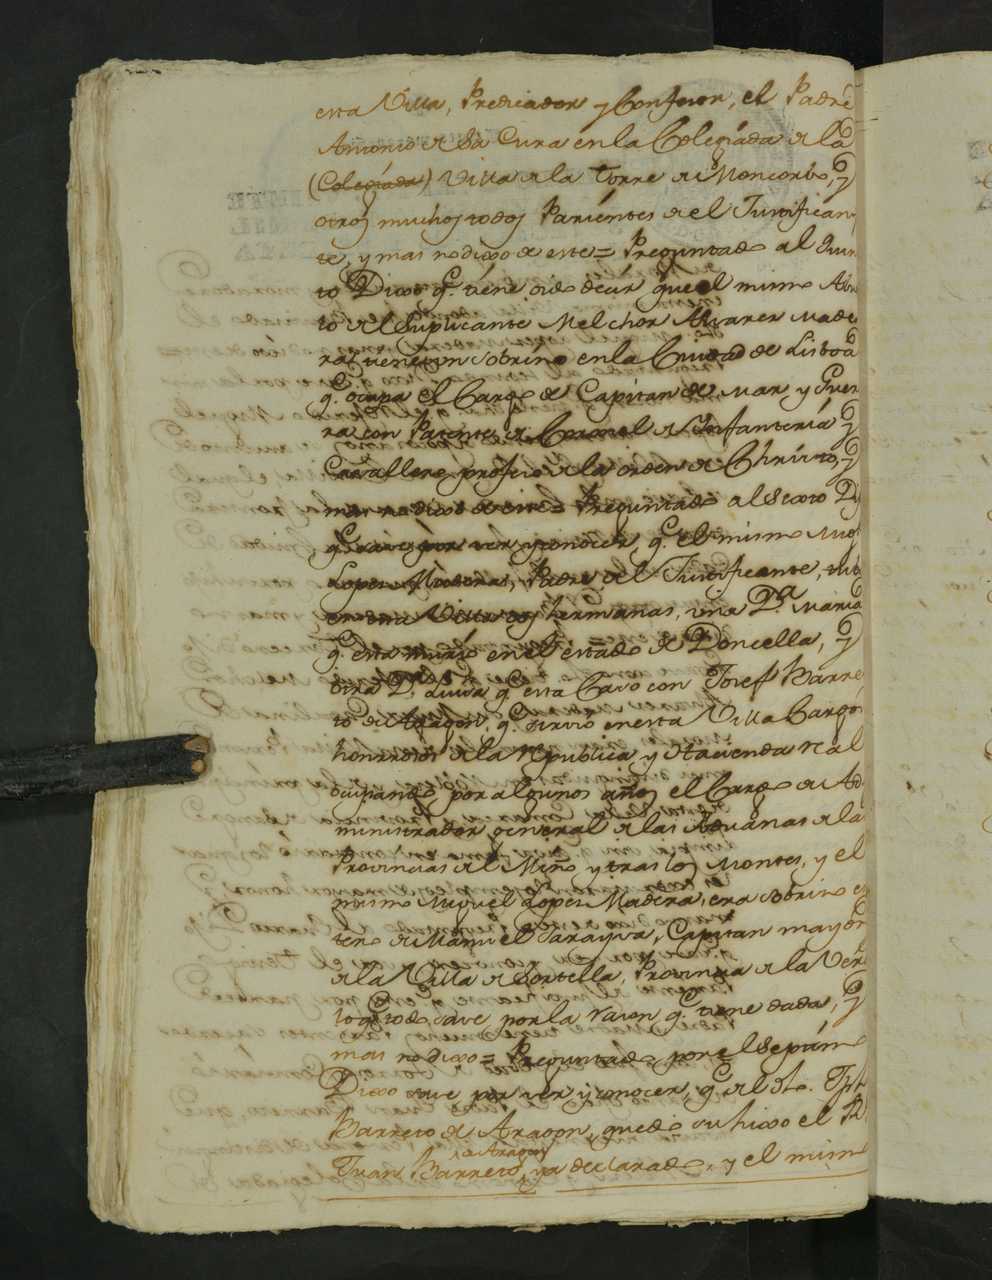 esta Villa, Predicador y Confesor, el Padre
Antonio de Sá Cura en la Colegiada de la
(Colegiada) Villa de la Torre de Moncorbo, y
otros muchos todos Parientes de el Justifican
te, y mas no dixo de este= Preguntado al Quin
to Dixo q.e tiene oido decir que el mismo Abue
lo del Suplicante Melchor Alvarez Made
ra tiene un sobrino en la Ciudad de Lisboa
q.e ocupa el Cargo de Capitan de Mar y Guer
ra con Patente de Coronel de Infanteria y
Cavallero profeso de la orden de Christo, y
mas no dixo de este= Preguntado al Sexto Di
q.e save por ver y conocer, q.e el mismo
Lopes Maderas, Padre del Justificante,
en esta Villa dos hermanas, una D.a Maria
q.e esta murio en el estado de Doncella, y
otra D.a Luisa q.e esta Caso con Josef Barre
to de Aragon, q.e sirvió en esta Villa Cargos
honrrosos de la republica, y Hacienda real
ocupando por algunos años el Cargo de Ad
ministrador general de las Aduanas de la
Provincias del Miño y tras los Montes, y el
mismo Miguel Lopes Madera, era sobrino
de Manuel Sarayva, Capitan mayor
de la Villa de Sortella, Provincia de la Vera
lo q.e todo save por la razon q.e tiene dada, y
mas no dixo= Preguntado por el Septimo
Dixo save por ver y conocer, q.e del d.ho Jph
Barreto de Aragon, quedo su hixo el P.e
Juan Barreto de Aragon ya declarado, y el mismo